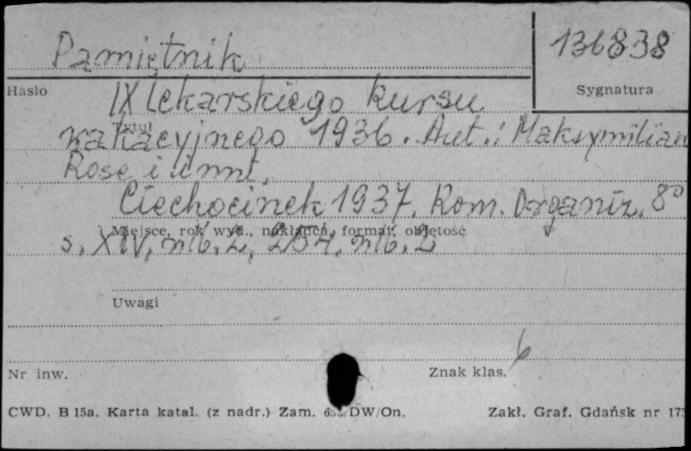 Pamiętnik 136838
Hasło Sygnatura
IX lekarskiego kursu
wakacyjnego 1936. Aut.: Maksymilian
Tytuł
Rose i inni.
Ciechocinek 1937. Kom. Organiz. 8°
Miejsce, rok wyd., nakładca, format, objętość
s. XIV, nlb. 2, 204, nlb. 2
Uwagi
6
Nr inw. Znak klas.
CWD. B 15a. Karta katal. (z nadr.) Zam. DW/On. Zakł. Graf. Gdańsk nr